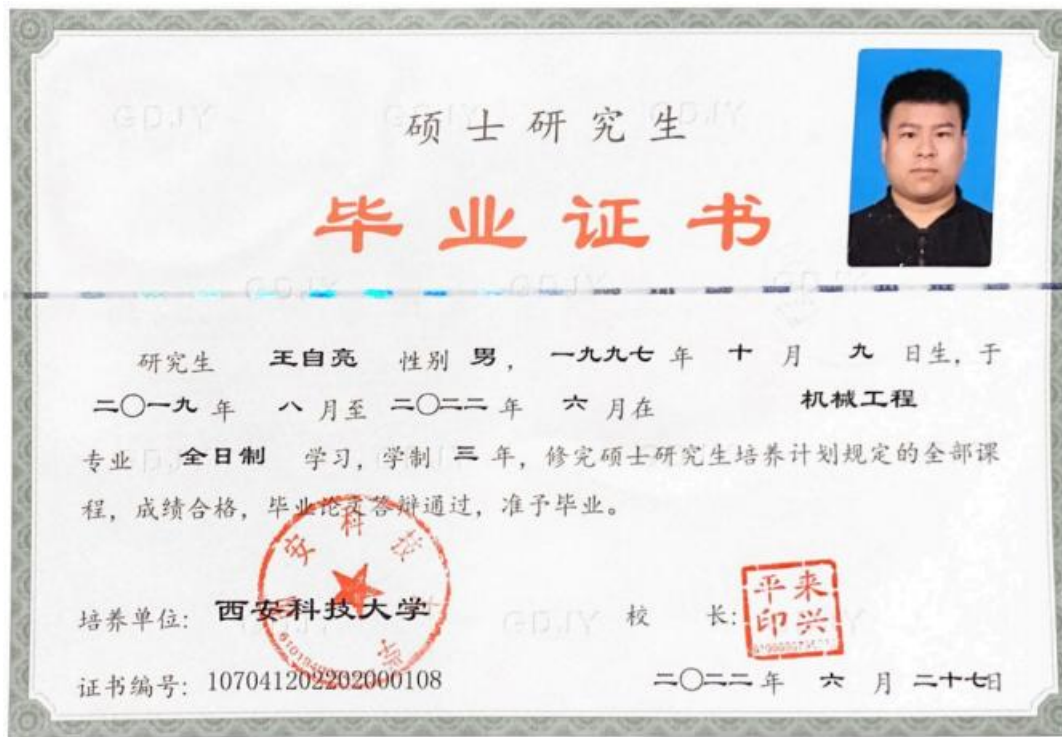 硕士研究生
毕业证书
研究生 王自亮 性别 男， 一九九七 年 十 月 九 日生，于
二〇一九 年 八 月至 二〇二二 年 六 月在 机械工程
专业 全日制 学习，学制 三 年，修完硕士研究生培养计划规定的全部课
程，成绩合格，毕业论文答辩通过，准予毕业。
培养单位：西安科技大学
校 长：
平来
印兴
证书编号：107041202202000108
二〇二二 年 六 月 二十七日
安科技
学